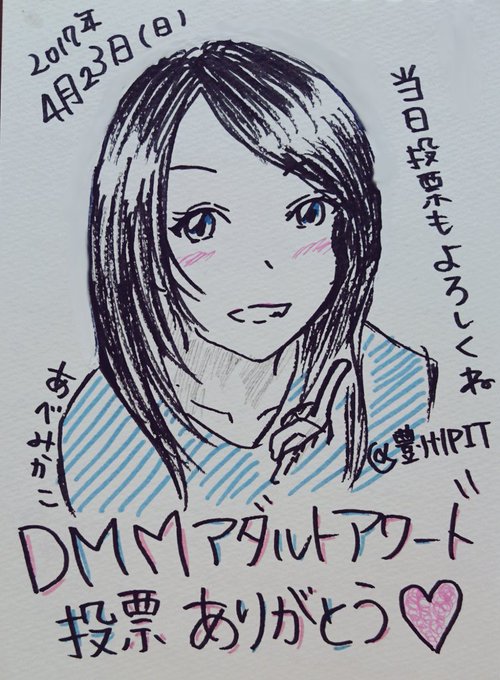 2017年
4月23日(日)
当日投票もよろしくね
@豊洲PIT
あべみかこ
DMMアダルトアワード
投票ありがとう♡